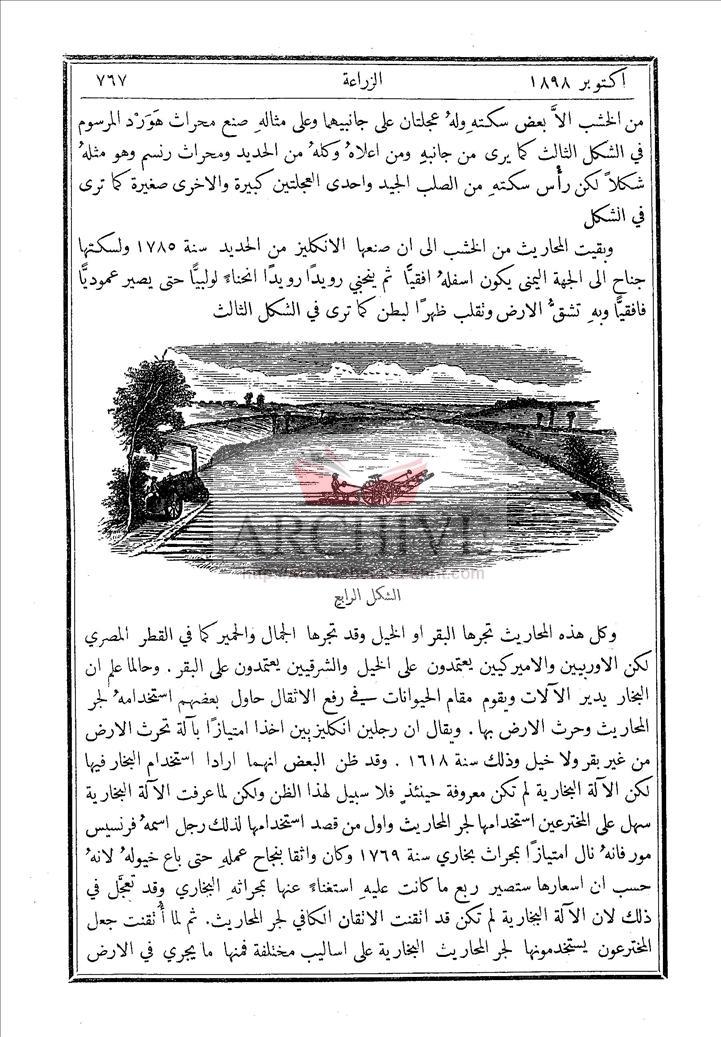 اكتوبر ١٨٩٨ الزراعة ٧٦٧
من الخشب الاَّ بعض سكته ولهُ عجلتان على جانبيهما وعلى مثالهِ صنع محراث هَوَرْد المرسوم
في الشكل الثالث كما يرى من جانبهِ ومن اعلاهُ وكلهُ من الحديد ومحراث رنسم وهو مثلهُ
شكلاً لكن رأْس سكتهِ من الصلب الجيد واحدى العجلتين كبيرة والاخرى صغيرة كما ترى
في الشكل
وبقيت المحاريث من الخشب الى ان صنعها الانكليز من الحديد سنة ١٧٨٥ ولسكتها
جناح الى الجهة اليمنى يكون اسفلهُ افقيًّا ثم ينحني رويدًا رويدًا انحناءً لولبيًّا حتى يصير عموديًّا
فافقيًّا وبهِ تشقُّ الارض ونقلب ظهرًا لبطن كما ترى في الشكل الثالث
ARCHIVE
الشكل الرابع
وكل هذه المحاريث تجرها البقر او الخيل وقد تجرها الجمال والحمير كما في القطر المصري
لكن الاوربيين والاميركيين يعتمدون على الخيل والشرقيين يعتمدون على البقر . وحالما علم ان
البخار يدير الآلات ويقوم مقام الحيوانات في رفع الاثقال حاول بعضهم استخدامهُ لجر
المحاريث وحرث الارض بها . ويقال ان رجلين انكليزيين اخذا امتيازًا بآلة تحرث الارض
من غير بقر ولا خيل وذلك سنة ١٦١٨ . وقد ظن البعض انهما ارادا استخدام البخار فيها
لكن الآلة البخارية لم تكن معروفة حينئذٍ فلا سبيل لهذا الظن ولكن لما عرفت الآلة البخارية
سهل على المخترعين استخدامها لجر المحاريث واول من قصد استخدامها لذلك رجل اسمهُ فرنسيس
مور فانهُ نال امتيازًا بمحراث بخاري سنة ١٧٦٩ وكان واثقا بنجاح عملهِ حتى باع خيولهُ لانهُ
حسب ان اسعارها ستصير ربع ما كانت عليهِ استغناءً عنها بمحراثهِ البخاري وقد تعجَّل في
ذلك لان الآلة البخارية لم تكن قد اتقنت الاتقان الكافي لجر المحاريث. ثم لما أُتقنت جعل
المخترعون يستخدمونها لجر المحاريث البخارية على اساليب مختلفة فمنها ما يجري في الارض